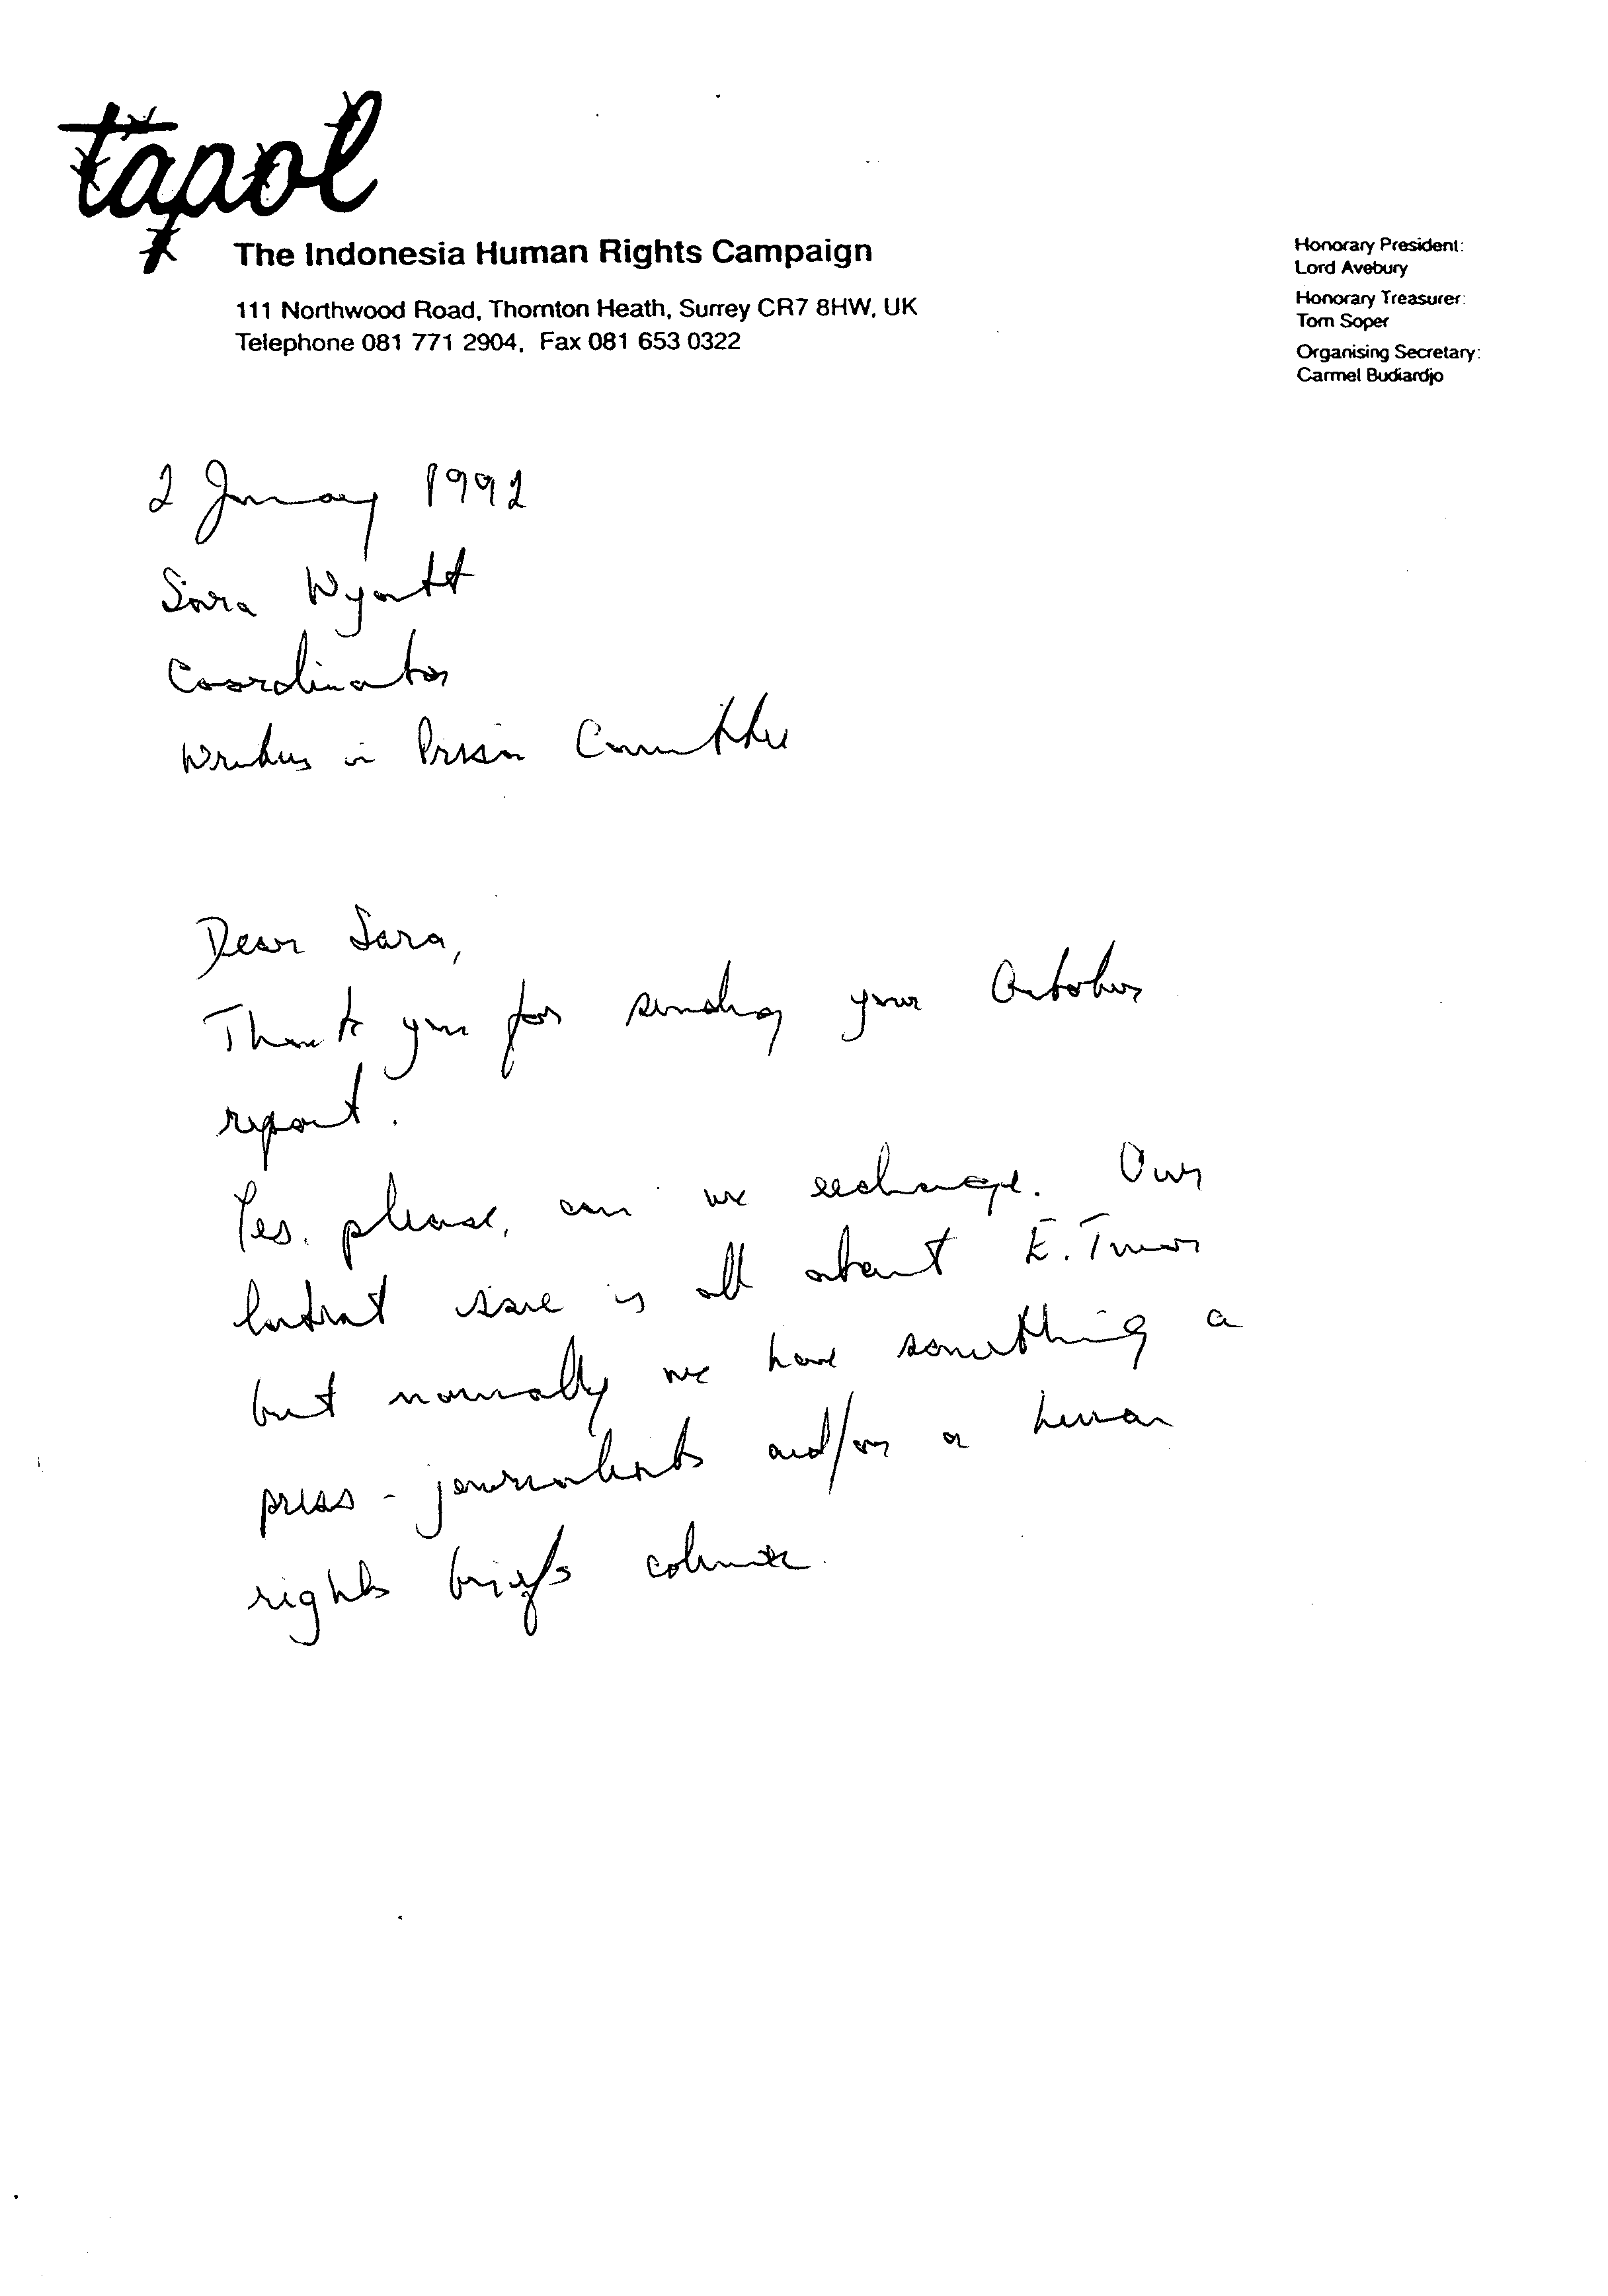 tapol
The Indonesia Human Rights Campaign
111 Northwood Road, Thornton Heath, Surrey CR7 8HW, UK
Telephone 081 771 2904, Fax 081 653 0322
Honorary President:
Lord Avebury
Honorary Treasurer:
Tom Soper
Organising Secretary:
Carmel Budiardjo
2 January 1992
Sara Wyatt
Coordinator
Writers in Prison Committee
Dear Sara,
Thank you for sending your October
report.
Yes, please, can we exchange. Our
latest issue is all about E. Timor
but normally we have something a
press - journalists and/or a human
rights briefs column.